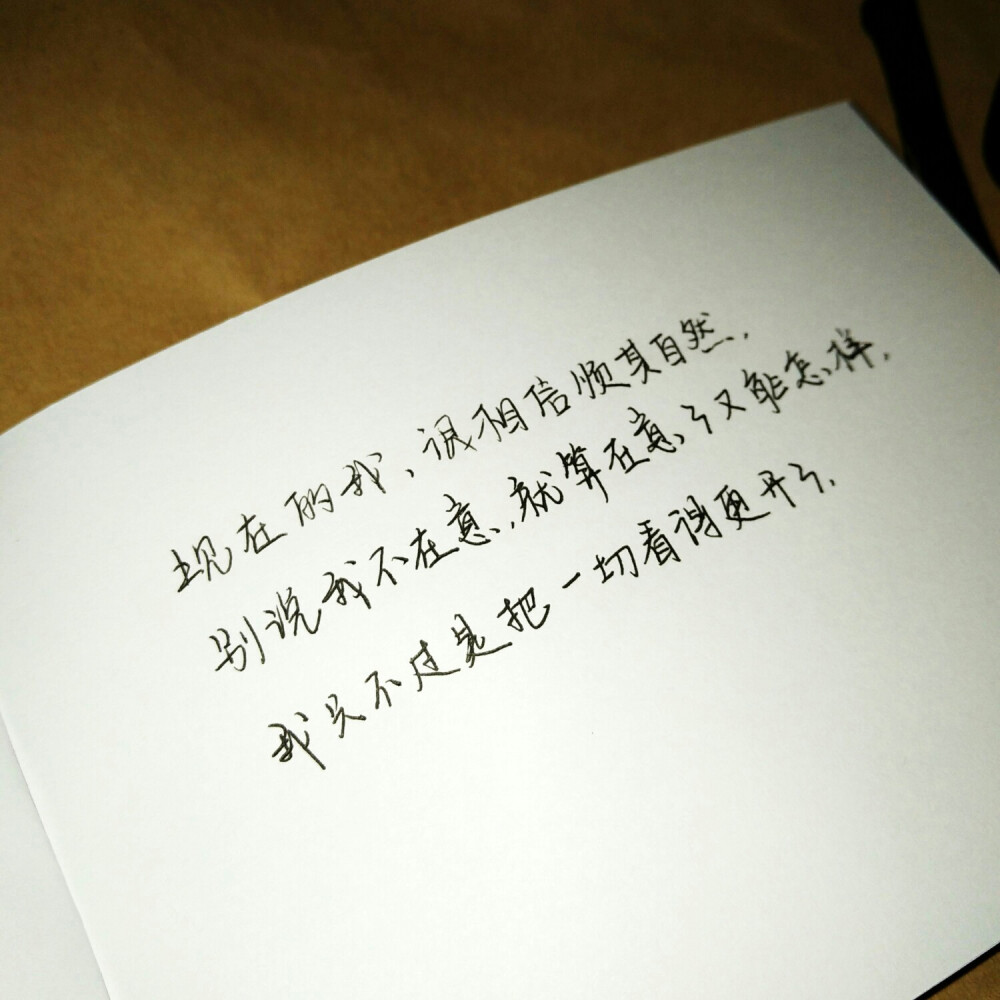 现在的我，很相信顺其自然，
别说我不在意，就算在意了又能怎样，
我只不过是把一切看得更开了，